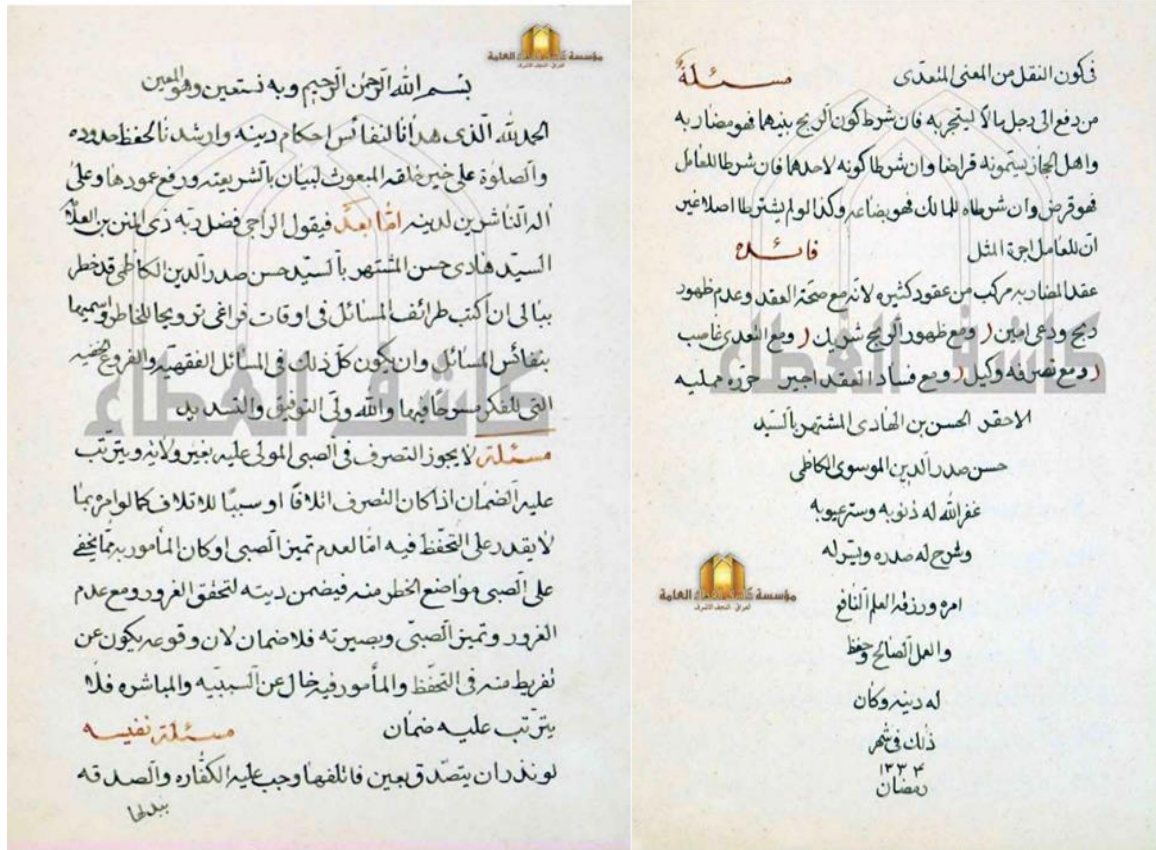 مؤسسة كاشف الغطاء العامة
العراق - النجف الاشرف
بسم الله الرحمن الرحيم وبه نستعين وهو المعين
الحمد لله الذى هدانا لنفائس احكام دينه وارشدنا لحفظ حدوده
والصلوة على خير خلقه المبعوث لبيان الشريعته ورفع عمودها وعلى
اله الناشرين لدينه امّا بعد فيقول الراجى فضل ربه ذى المنن بن العلامة
السيد هادى حسن المشتهر بالسيد حسن صدر الدين الكاظمى قد خطر
ببالى ان اكتب طرائف المسائل فى اوقات فراغى ترويحا للخاطر واسميها
بنفائس المسائل وان يكون كل ذلك فى المسائل الفقهية والفروع الخفيه
التى للفكر مسرحًا فيها والله ولى التوفيق والتسديد
كاشف الغطاء
مسئلة لا يجوز التصرف فى الصبى المولى عليه بغير ولايه ويترتب
عليه الضمان اذا كان التصرف اتلافًا او سببًا للاتلاف كما لو امره بما
لا يقدر على التحفظ فيه امّا لعدم تميز الصبى او كان المأمور به مما يخفى
على الصبى مواضع الخطر منه فيضمن ديته لتحقق الغرور ومع عدم
الغرور وتميز الصبّى وبصيرته فلا ضمان لان وقوعه يكون عن
تفريط منه فى التحفظ والمأمور فيه خال عن السببيه والمباشره فلا
يترتب عليه ضمان مسئلة نفيسه
لو نذر ان يتصدق بعين فاتلفها وجب عليه الكفاره والصدقه
ببدلها
فى كون النقل من المعنى المتعدى مسئلةٌ
من دفع الى رجل مالاً ليتجر به فان شرط كون الربح بينهما فهو مضاربه
واهل الحجاز يسمونه قراضا وان شرطا كونه لاحدهما فان شرطا للعامل
فهو قرض وان شرطاه للمالك فهو بضاعه وكذا لو لم يشترطا اصلا غير
ان للعامل اجرة المثل فائده
عقد المضاربه مركب من عقود كثيره لانه مع صحة العقد وعدم ظهور
ربح ودعى امين ( ومع ظهور الربح شريك ( ومع التعدى غاصب
( ومع تصرفه وكيل ( ومع فساد العقد اجير حرره ممليه
كاشف الغطاء
الاحقر الحسن بن الهادى المشتهر بالسيد
حسن صدر الدين الموسوى الكاظمى
غفر الله له ذنوبه وستر عيوبه
وشرح له صدره ويسر له
امره ورزقه العلم النافع
والعمل الصالح وحفظ
له دينه وكان
ذلك فى شهر
١٣٣٤
رمضان
مؤسسة كاشف الغطاء العامة
العراق - النجف الاشرف